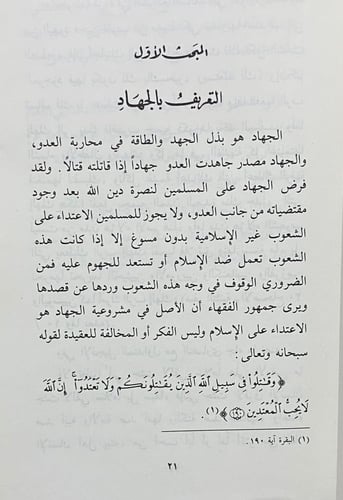 المبحث الأول
التعريف بالجهاد
الجهاد هو بذل الجهد والطاقة في محاربة العدو،
والجهاد مصدر جاهدت العدو جهاداً إذا قاتلته قتالاً. ولقد
فرض الجهاد على المسلمين لنصرة دين الله بعد وجود
مقتضياته من جانب العدو، ولا يجوز للمسلمين الاعتداء على
الشعوب غير الإسلامية بدون مسوغ إلا إذا كانت هذه
الشعوب تعمل ضد الإسلام أو تستعد للجهوم عليه فمن
الضروري الوقوف في وجه هذه الشعوب وردها عن قصدها
ويرى جمهور الفقهاء أن الأصل في مشروعية الجهاد هو
الاعتداء على الإسلام وليس الفكر أو المخالفة للعقيدة لقوله
سبحانه وتعالى:
﴿وَقَٰتِلُوا۟ فِي سَبِيلِ ٱللَّهِ ٱلَّذِينَ يُقَٰتِلُونَكُمْ وَلَا تَعْتَدُوٓا۟ إِنَّ ٱللَّهَ
لَا يُحِبُّ ٱلْمُعْتَدِينَ ١٩٠﴾(١).
(١) البقرة آية ١٩٠.
٢١